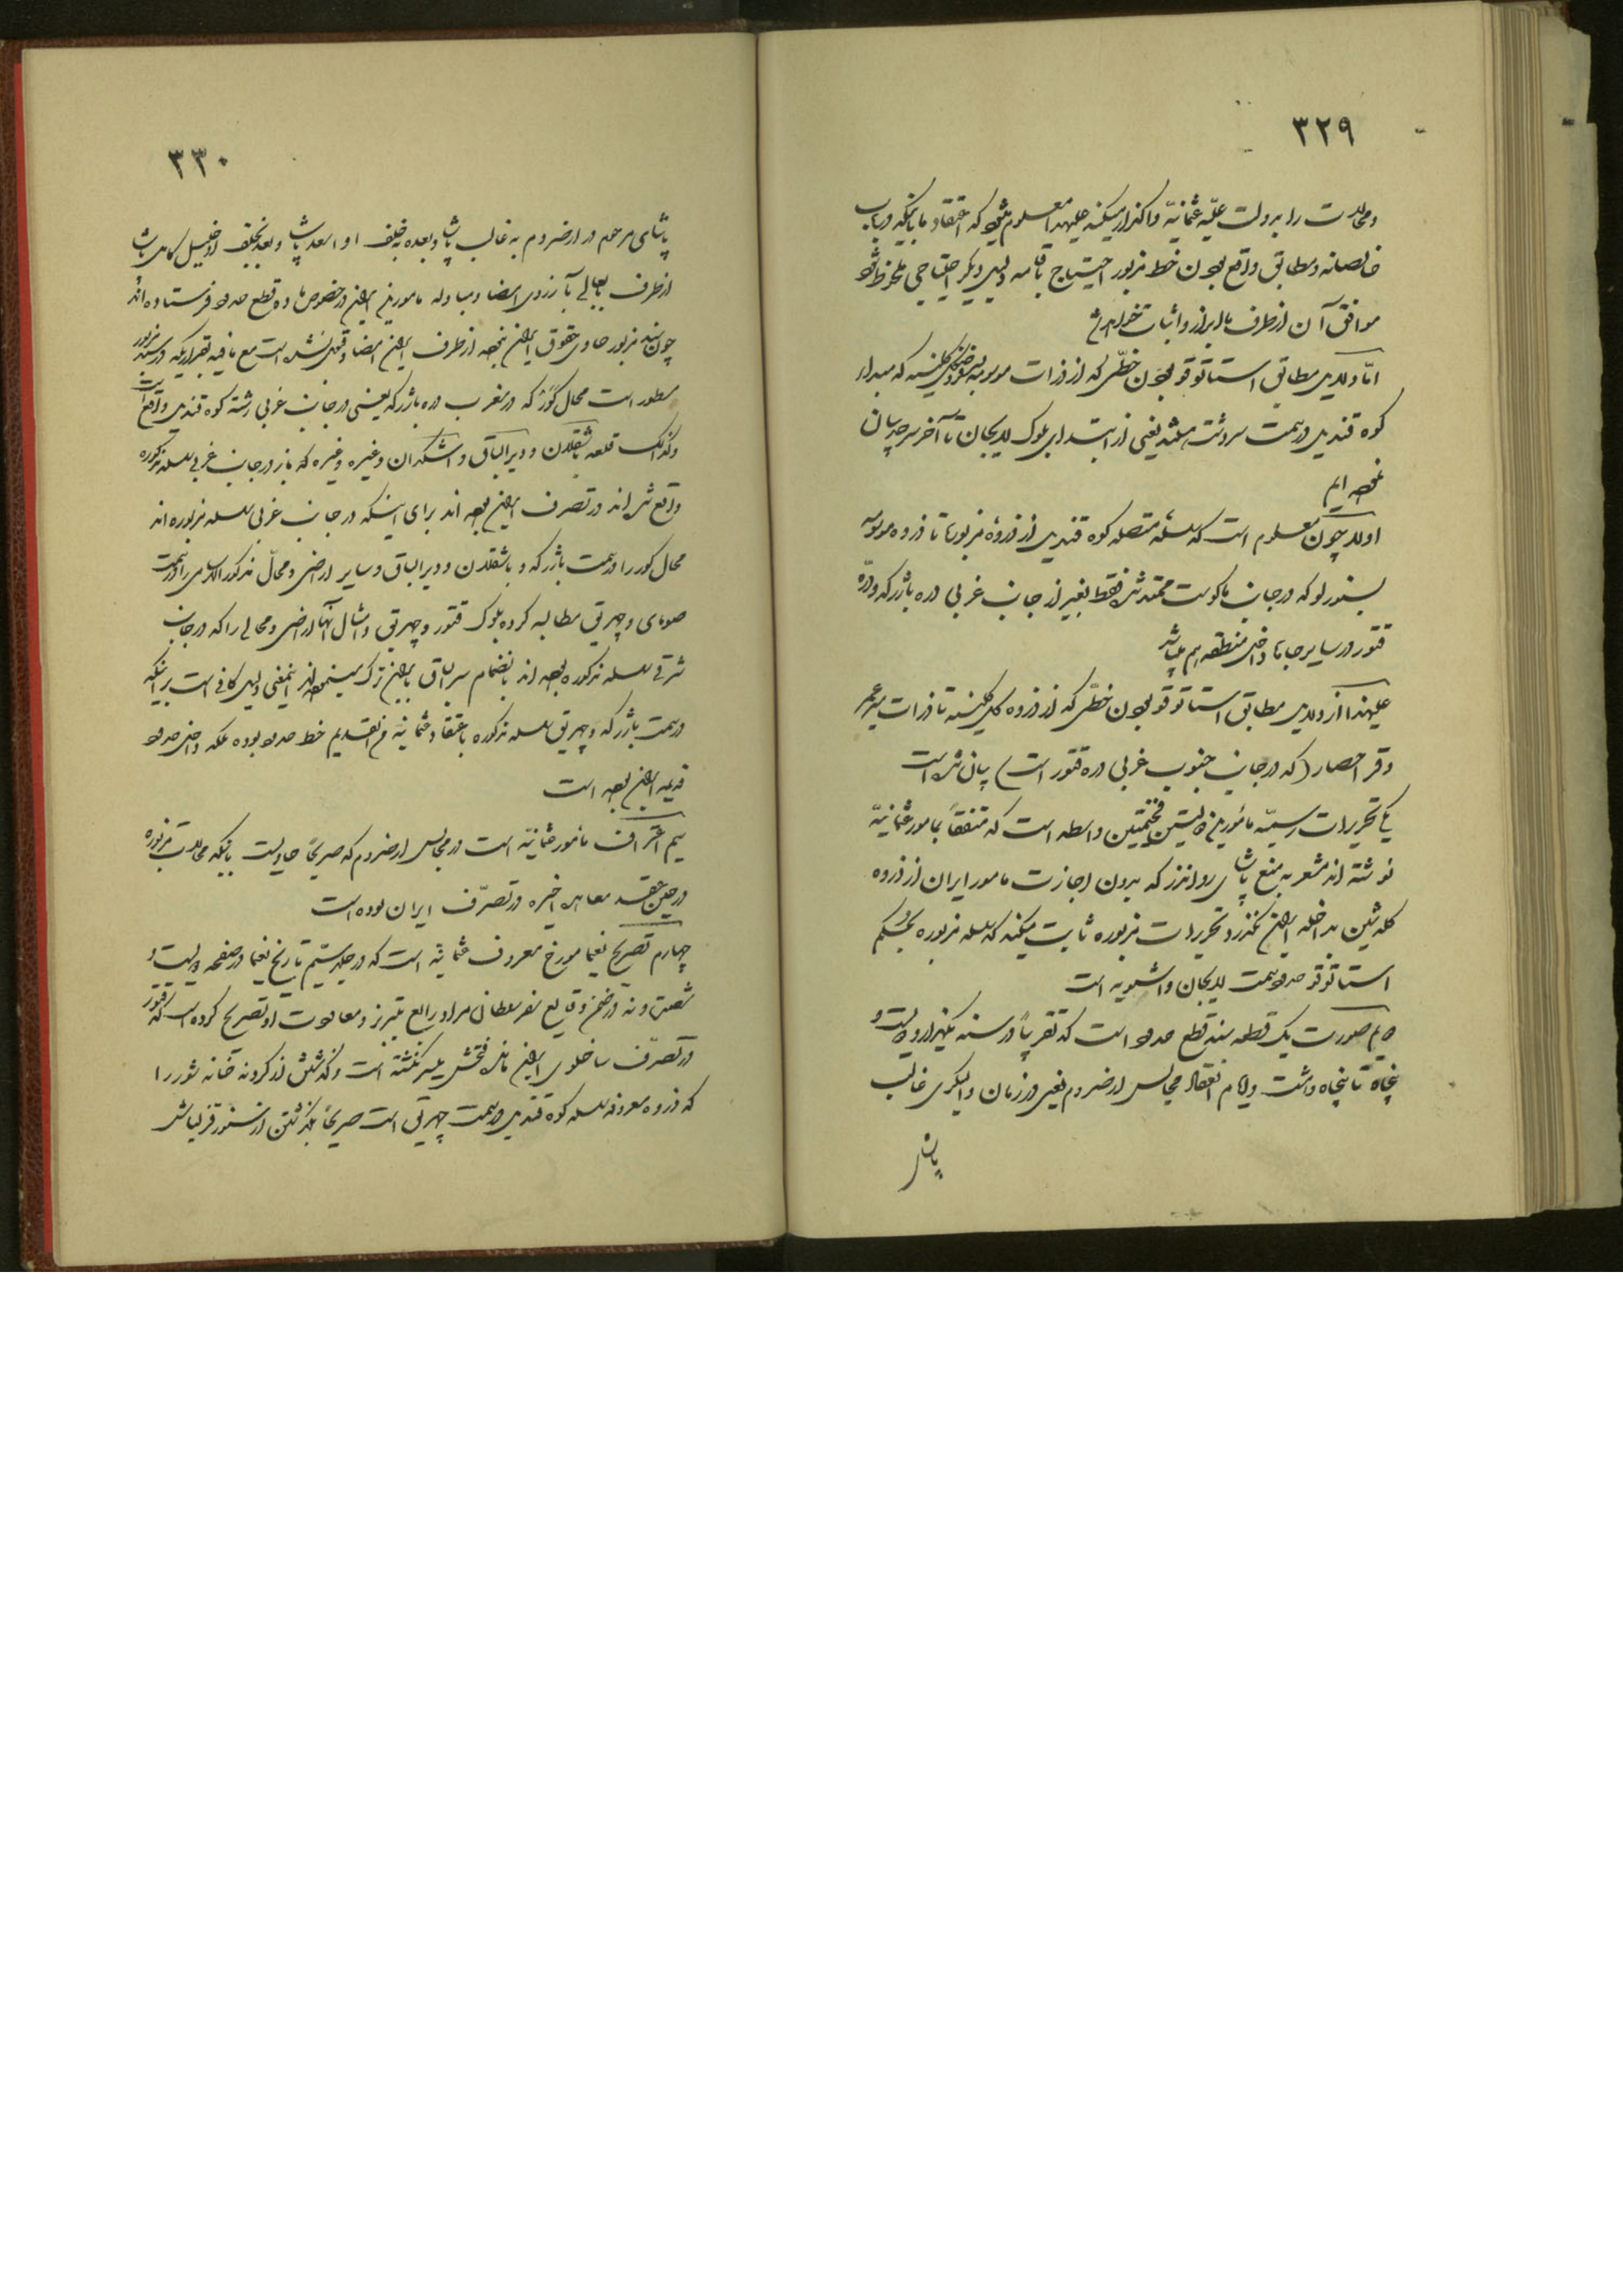 ۳۲۹
ومحالات را بدولت علیّه عثمانیّه واگذار میکند علیهذا معلوم میشود که اعتقاد ما باینکه در باب
خالصانه ومطابق واقع بودن خط مزبور احتیاج باقامه دلیل دیگر احتیاجی ملحوظ شود
موافق آن از طرف ما ابراز واثبات خواهد شد
امّا دلایل مطابق استاتوقو بودن خطّی که از ذرات موسومه کلیشینه که مبداء
کوه قندیل در سمت سردشت میباشد یعنی از ابتدای بلوک لاریجان تا آخر سرحد بیان
نموده ایم
اولا چون معلوم است که سلسله متصله کوه قندیل از ذروهٔ مزبور تا ذروه موسومه
بسنورلو که در جانب ماکوست ممتد شده فقط بغیر از جانب غربی دره باژرکه و درّه
قتور در سایر جاها داخل منطقه هم میباشد
علیهذا از دلایل مطابق استاتوقو بودن خطّی که از ذروه کله شینه تا ذرات
وقر احصار (که در جانب جنوب غربی دره قتور است) بیان شده است
یکی تحریرات رسمیّه مأمورین دولتین فخیمتین واسطه است که متفقاً بمامور عثمانیّه
نوشته اند مشعر به منع پاشای رواندز که بدون اجازت مامور ایران از ذروه
کله شین بداخله ایران نگذرد و تحریرات مزبوره ثابت میکند که سلسله مزبوره بحکم
استاتوقو حدود سمت لاریجان واشنویه است
دویم صورت یک قطعه سند قطع حدود است که تقریباً در سنه یکهزار و دویست و
پنجاه تا پنجاه وهشت وایام انعقاد مجالس ارضروم یعنی در زمان والیگری غالب
پاشا
۳۳۰
پاشای مرحوم در ارضروم به غالب پاشا وبعده به خلف او اسعد پاشا وبعد بخلف او خلیل کامل پاشا
از طرف بابعالی بآرزوی امضا ومبادله مامورین ایران در خصوص ماده قطع حدود فرستاده اند
چون سند مزبور حاوی حقوق ایران نبوده از طرف ایران امضا وقبول نشده است مع مافیه بقراریکه در سند مزبور
مسطور است محال کَوَر که در مغرب دره باژرکه یعنی در جانب غربی رشته کوه قندیل واقع است
وکذالک قلعه باشقلان ودیرالباق واشکدان وغیره وغیره که باز در جانب غربی سلسله مذکوره
واقع شده اند در تصرف ایران بوده اند برای اینکه در جانب غربی سلسله مزبوره اند
محال کور را در سمت باژرکه وباشقلان ودیرالباق وسایر اراضی ومحالّ مذکور الاسامی را در سمت
صومای وچهریق مطالبه کرده بلوک قتور وچهریق وامثال آنها اراضی ومحالی را که در جانب
شرقی سلسله مذکوره بوده اند بانضمام سرالباق بایران ترک مینموده اند اینمعنی دلیل کافی است بر اینکه
در سمت باژرکه وچهریق سلسله مذکوره باعتقاد عثمانیه من القدیم خط حدود بوده بلکه داخل حدود
قدیمه ایران بوده است
سیم اعتراف مامور عثمانیّه است در مجالس ارضروم که صریحًا حاویست باینکه محالات مزبوره
در حین عقد معاهده اخیره در تصرّف ایران بوده است
چهارم تصریح نعیما مورخ معروف عثمانیه است که در جلد سیّم تاریخ نعیما در صفحه دویست و
شصت ونه در ضمن وقایع سفر سلطان مراد رابع بتبریز ومعاودت او تصریح کرده است که قتور
در تصرّف ساخلوی ایران مانده فتحش میسر نگشته است وگذشتن از کردونه خانه شورر ا
که ذروه معروفه سلسله کوه قندیل در سمت چهریق است صریحاً بگذشتن از سنور قزلباش